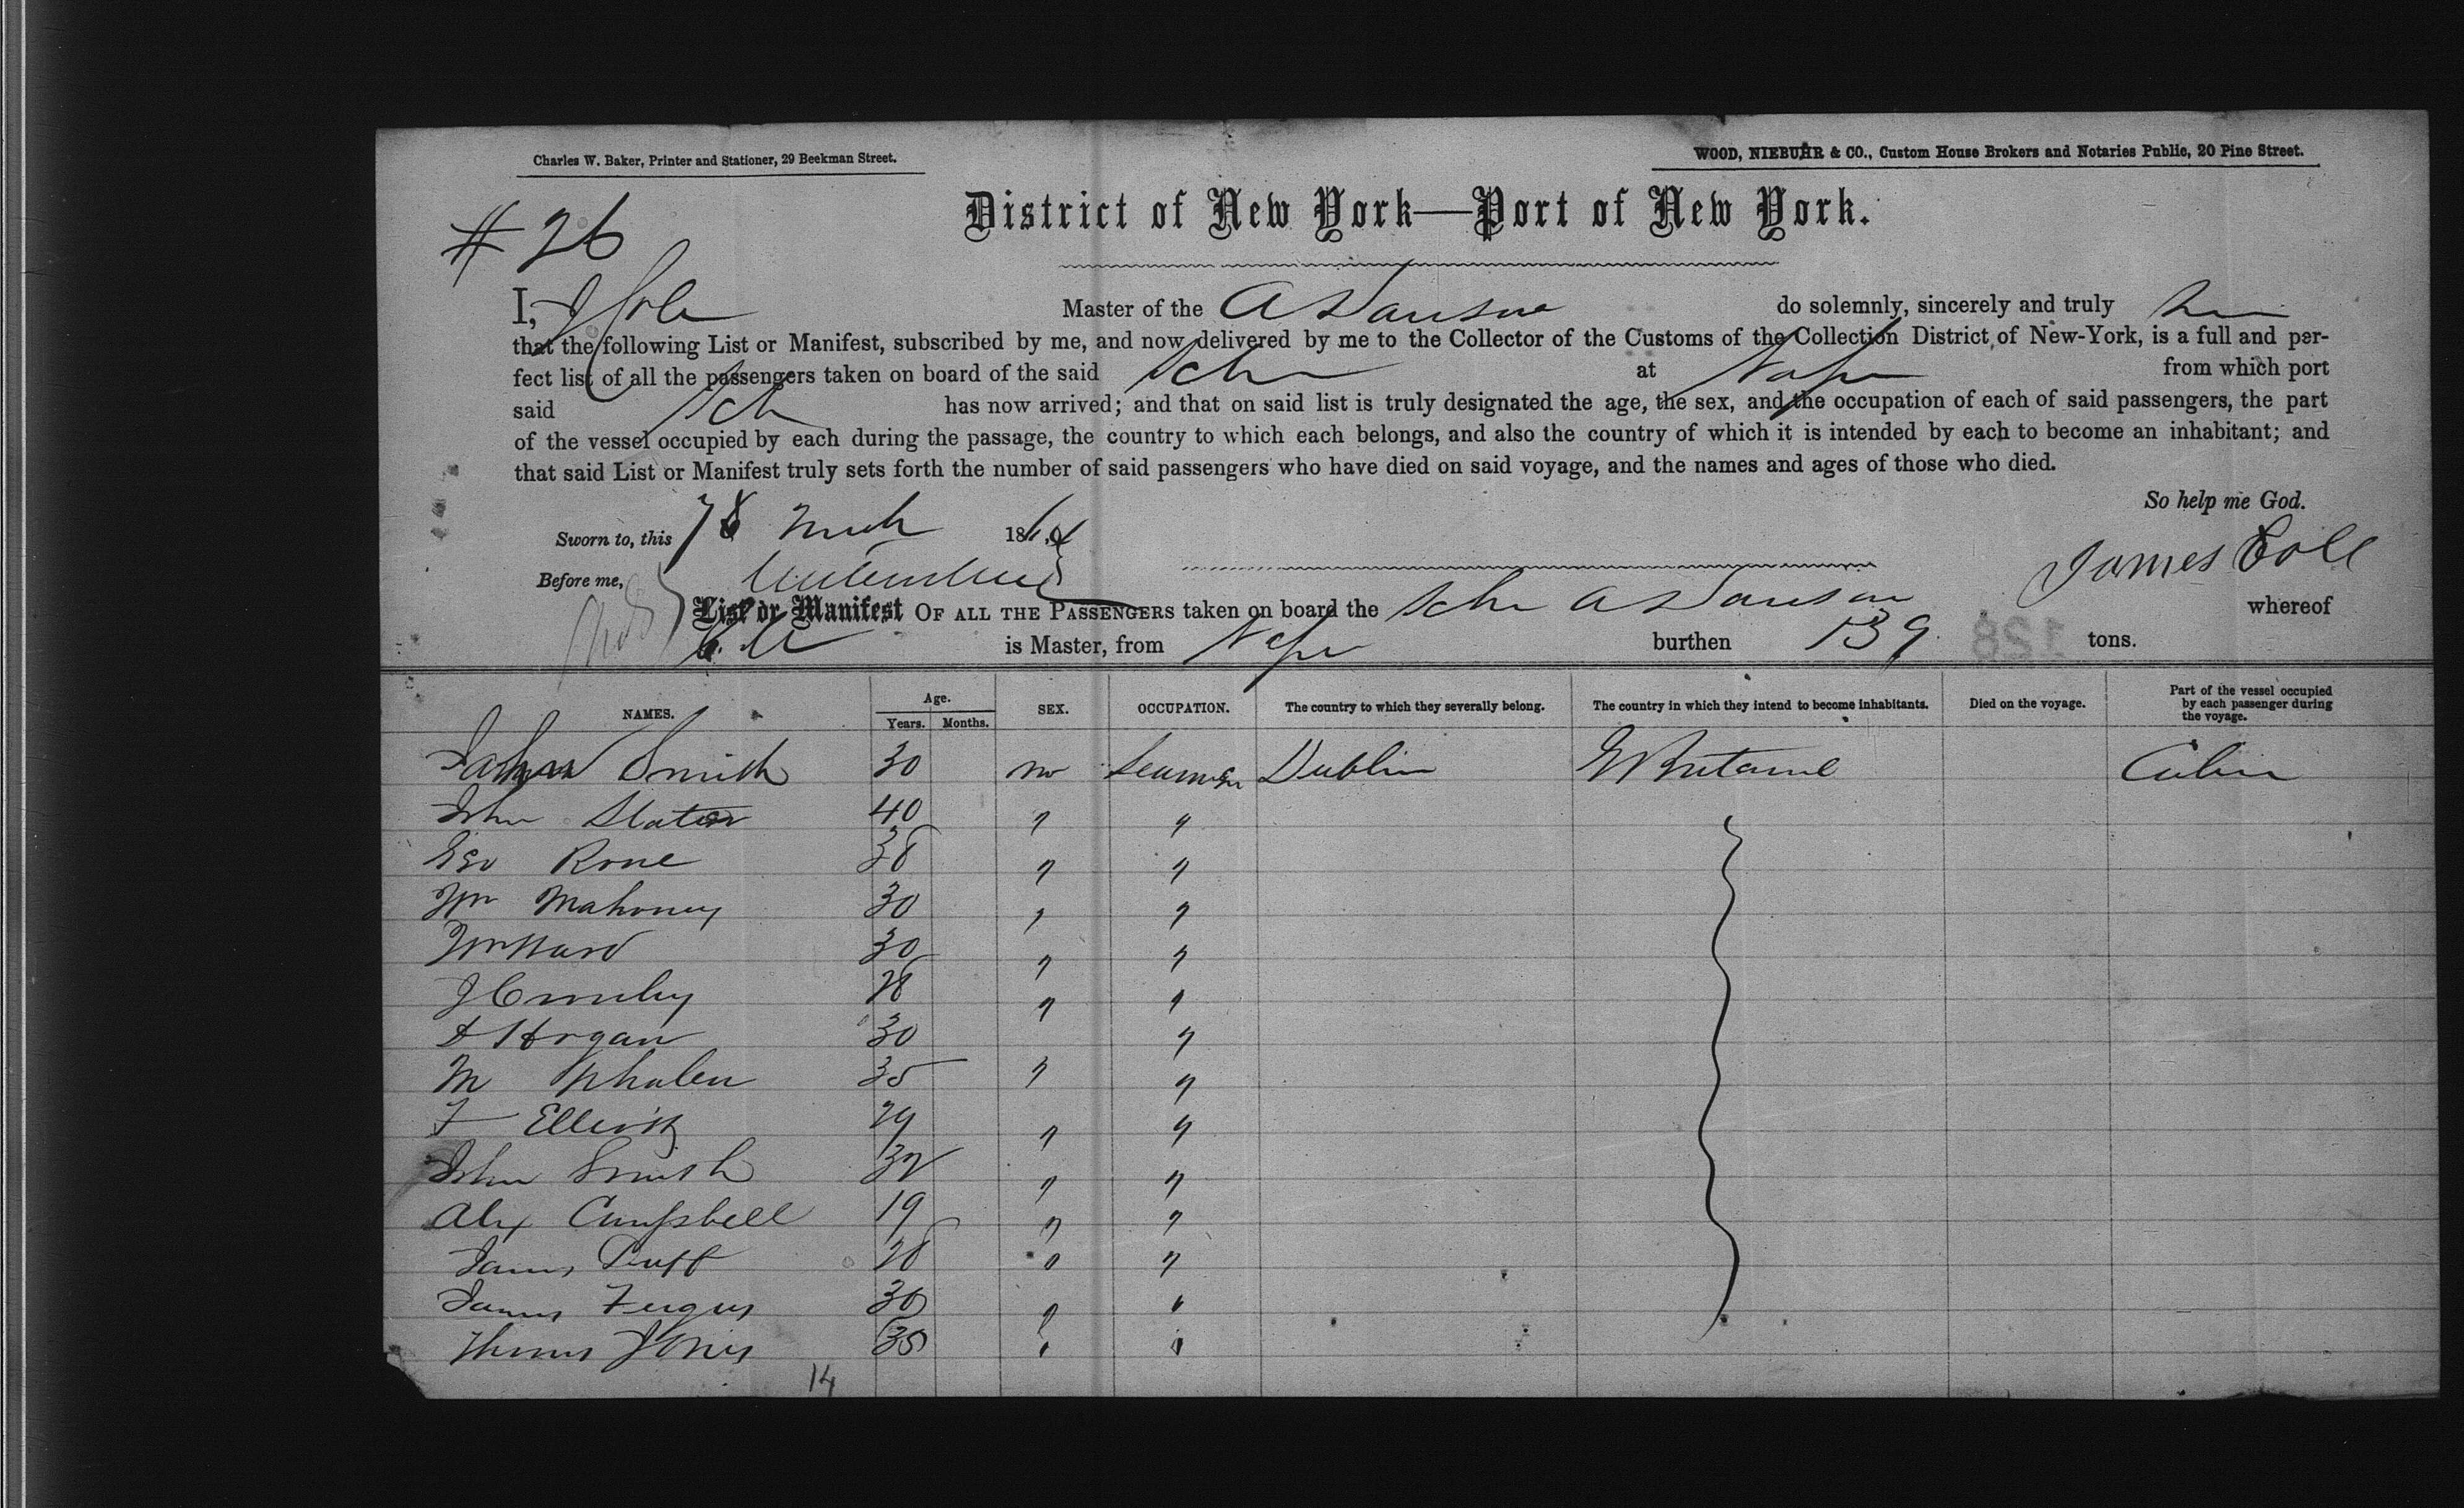 Charles W. Baker, Printer and Stationer, 29 Beekman Street.
WOOD, NIEBUHR & CO., Custom House Brokers and Notaries Public, 20 Pine Street.
# 26
District of New York—Port of New York.
I, J Cole Master of the do solemnly, sincerely and truly
that the following List or Manifest, subscribed by me, and now delivered by me to the Collector of the Customs of the Collection District of New-York, is a full and per-
fect list of all the passengers taken on board of the said Schr at from which port
said Sch has now arrived; and that on said list is truly designated the age, the sex, and the occupation of each of said passengers, the part
of the vessel occupied by each during the passage, the country to which each belongs, and also the country of which it is intended by each to become an inhabitant; and
that said List or Manifest truly sets forth the number of said passengers who have died on said voyage, and the names and ages of those who died.
So help me God.
Sworn to, this 186
Before me,
James Cole
List or Manifest OF ALL THE PASSENGERS taken on board the Schr whereof
is Master, from burthen 139 tons.
128
NAMES. Age. Years. Months. SEX. OCCUPATION. The country to which they severally belong. The country in which they intend to become inhabitants. Died on the voyage. Part of the vessel occupied by each passenger during the voyage.
Smith 30 m Seamen Dublin G Britaine Cabin
John Slater 40 " "
Geo Rone 38 " "
Wm Mahoney 30 " "
Wm Ward 30 " "
J 28 " "
Hogan 30 "
M Phalen 35 " "
F Elliott 29 " "
John Smith 32 " "
Alex Campbell 19 " "
James 28 " "
James Fergus 30 " "
Thomas Jones 35 " "
14